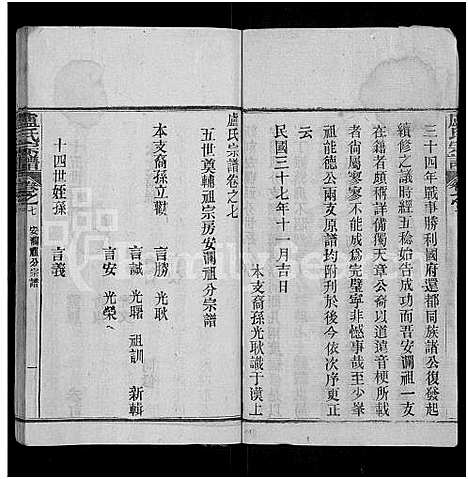 三十四年戰事勝利國府還都同族諸公復發起
續修之議時經五稔始告成功而吾安瀾祖一支
在籍者頗稱詳備獨天章公裔以道遠音梗所載
者尚屬寥寥不能成爲完璧寧非憾事哉至少峯
祖能德公兩支原譜均附刋於後今依次序更正
云
民國三十七年十一月吉日
本支裔孫光耿識于漢上
盧氏宗譜
盧氏宗譜卷之七
五世奠輔祖宗房安瀾祖分宗譜
本支裔孫立勳 言勝 光耿
言誠 光曙 祖訓 新輯
言安 光榮
十四世姪孫 言義
盧氏宗譜
卷之七
安瀾祖分宗譜
一